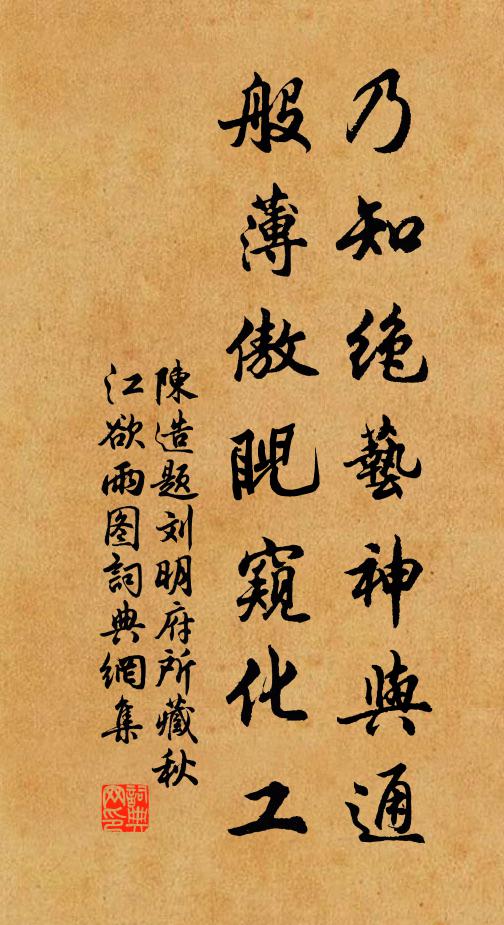 乃知绝藝神與通
般薄傲睨窺化工
陳造題刘明府所藏秋
江欲雨图詞典網集
詞典網印